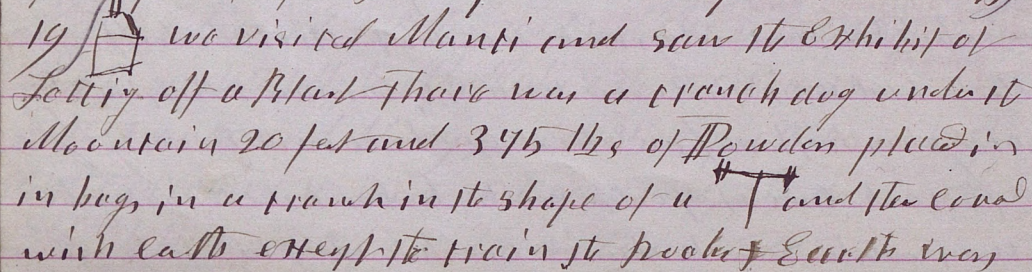 19 we visited Manti and saw the Exhibit of
Setting off a Blast Thare was a trench dog under the
Mountain 20 feet and 375 lbs of Powder placed in
in bags in a trench in the shape of a T and then coverd
with earth except the train the rocks & Earth was